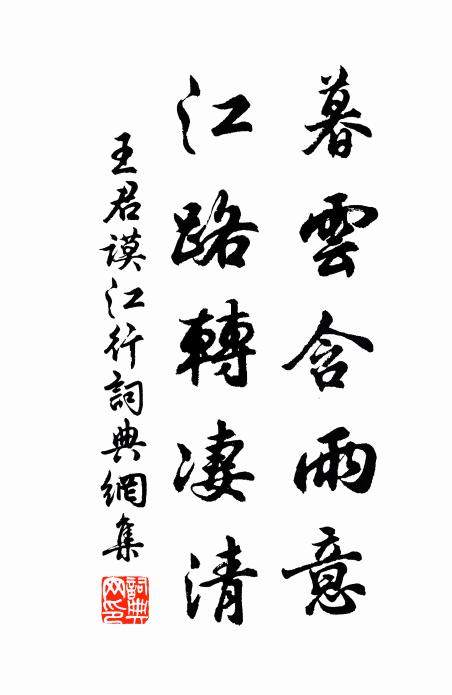 暮雲含雨意
江路轉淒清
王君謨江行詞典網集
詞典網印